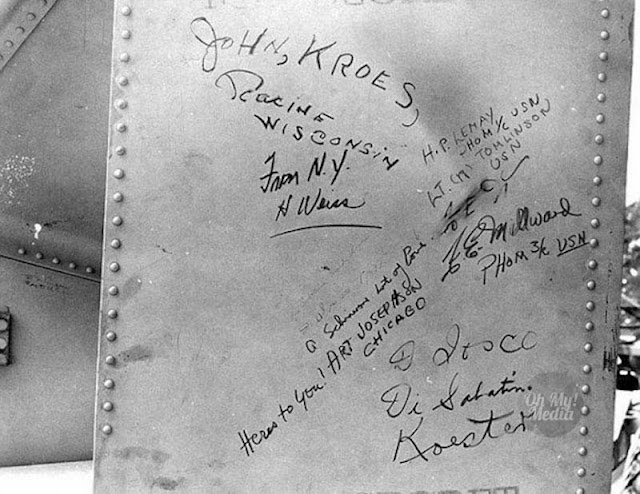 JOHN, KROES,
Racine
WISCONSIN
From N.Y.
H Weiss
H.P. LEMAY
PHOM 1/C USN
LT. TOMLINSON
USN
Millward
PHOM 3/C USN
a
Lot of
Heres to You! ART JOSEPHSON
CHICAGO
D
Di Sabatin.
Koester
Oh My!
Media